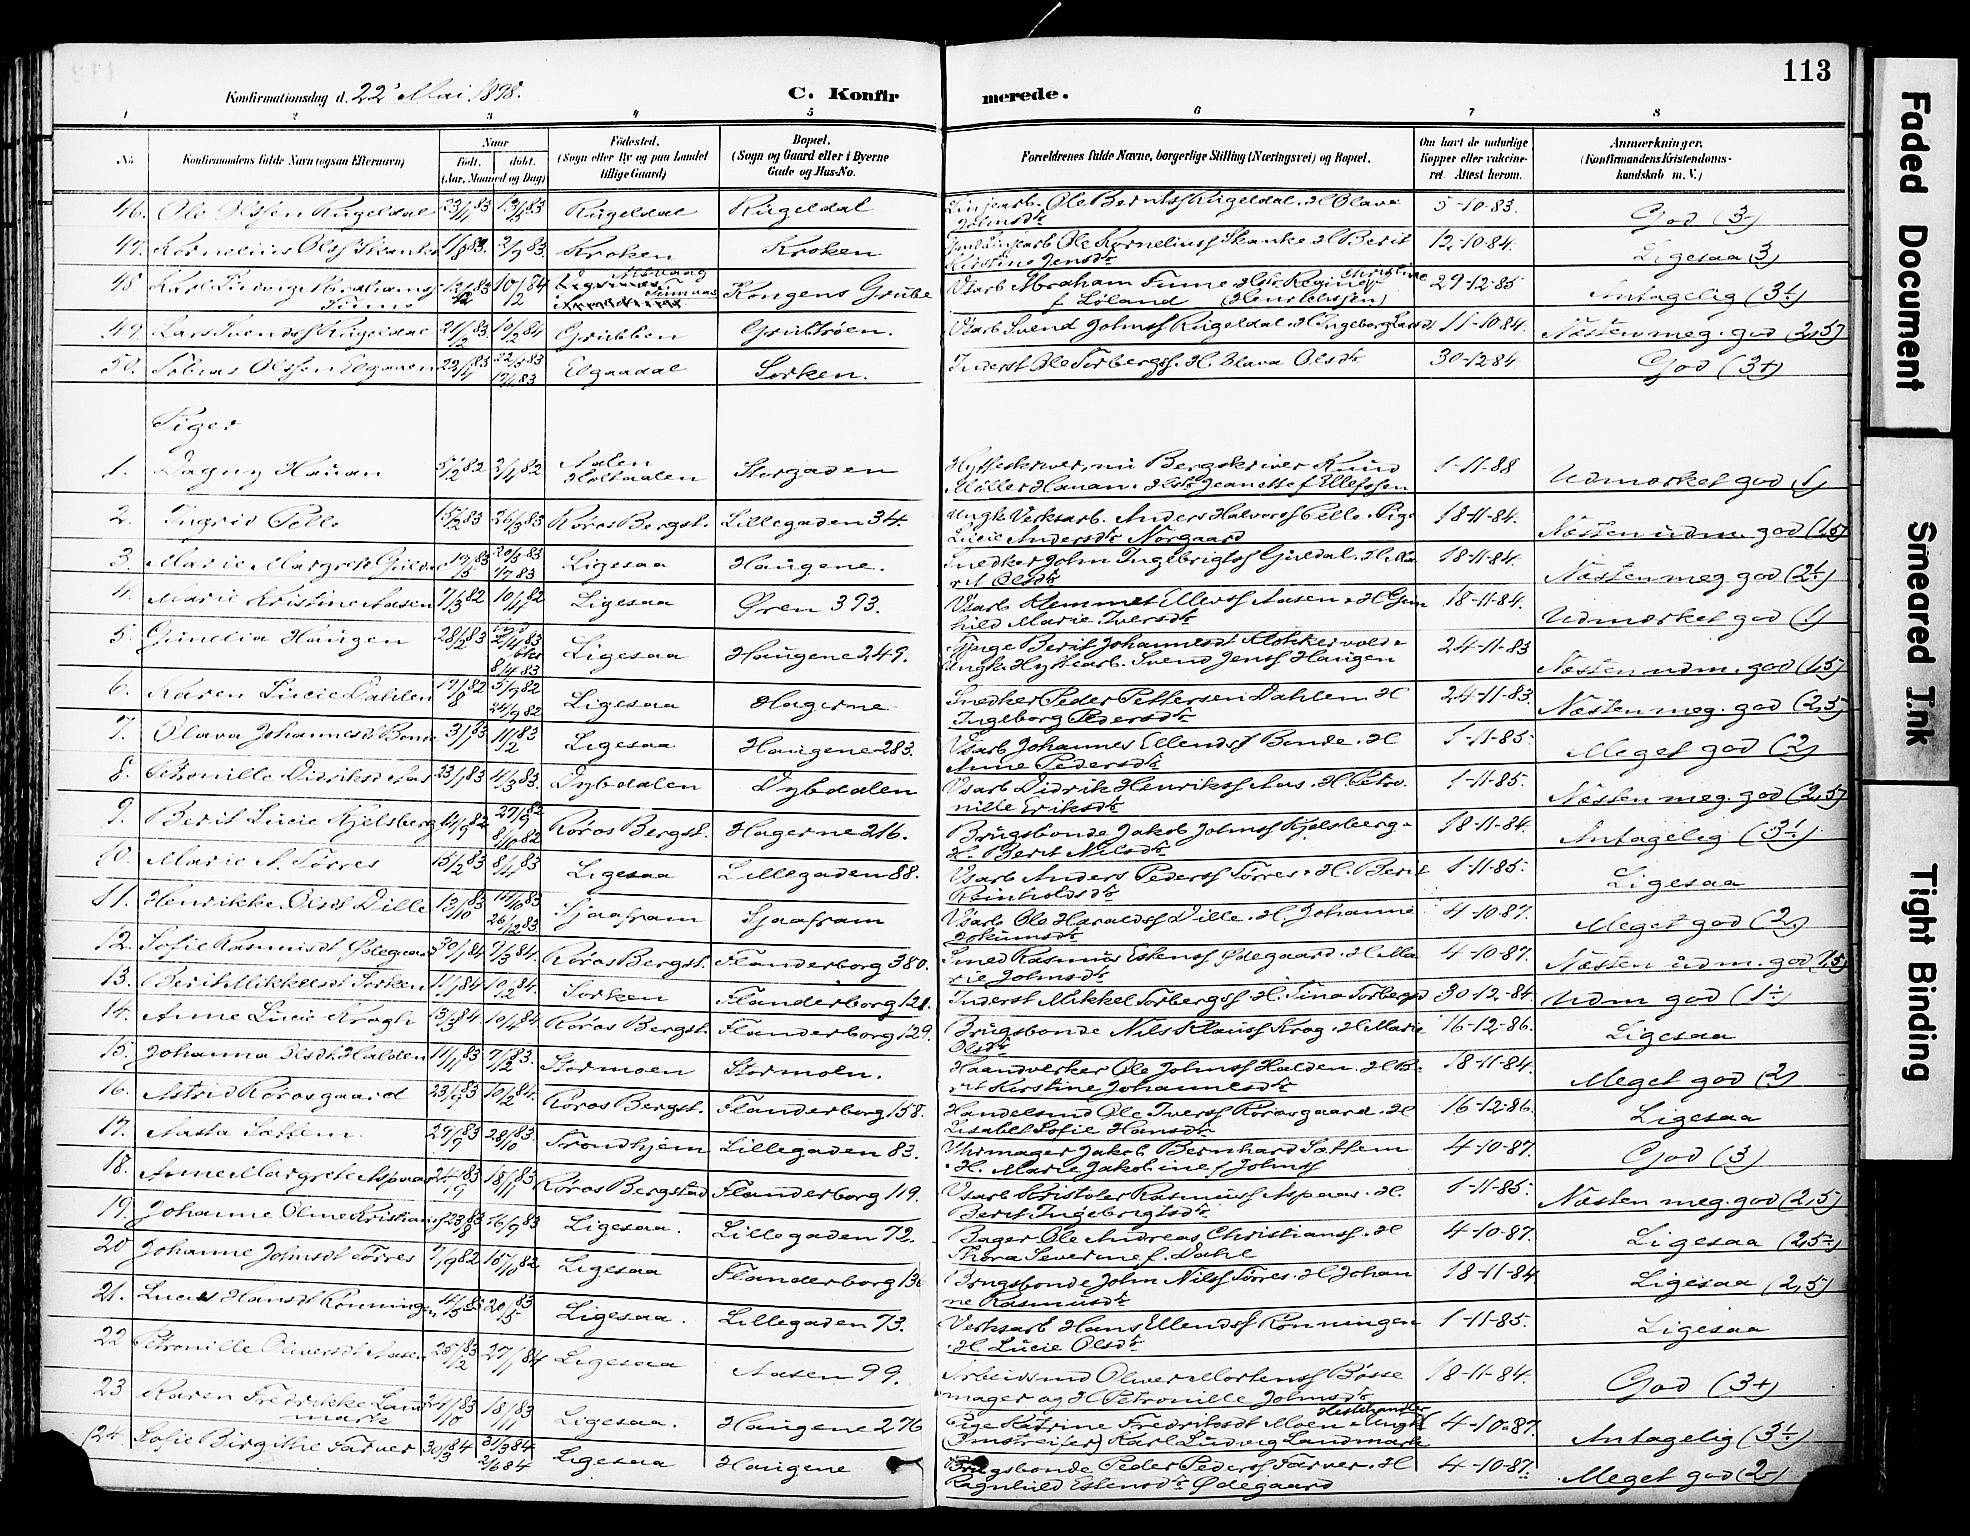 113
Konfirmationsdag d. 22' Mai 1898.
C. Konfirmerede.
1 2 3 4 5 6 7 8
No. Konfirmandens fulde Navn (ogsaa Efternavn) Naar født. døbt. (Aar, Maaned og Dag) Fødested. (Sogn eller By og paa Landet tillige Gaard) Bopæl. (Sogn og Gaard eller i Byerne Gade og Hus-No. Forældrenes fulde Navne, borgerlige Stilling (Næringsvei) og Bopæl. Om havt de naturlige Kopper eller vakcineret. Attest herom. Anmærkninger. (Konfirmandens Kristendomskundskab m. V.)
46. Ole Olsen Rugeldal 23/11 83 Rugeldal Rugeldal Ole Berntsf Rugeldal. H Olava Johnsdtr 5-10-83. God (3)
47. Kornelius Olsf Skanke 3/9 83. Kroken Kroken Ole Korneliusf Skanke H Berit Kirstine Jensdtr 12-10-84. Ligesaa (3)
48 Karl Ludvig Abrahamsf Fiime 10/12 84 Kongens Grube Vsarb Abraham Fiime f Løland 29-12-85 Antagelig (3÷)
49. Lars Svendsf Rugeldal 21/12 83. 10/2 84 Grubben Grubrøen. Vsarb Svend Johnsf Rugeldal. H Ingeborg Larsdt 11-10-84. Næsten meg. god (2,5)
50. Tobias Olsen Elgaaen 22/4 83 Elgaadal Sorken. Inderst Ole Torbergsf. H. Olava Olsdtr 30-12-84 God (3+)
Piger
1. Dagny Hauan 5/2 82 2/4 82 Aalen Holtaalen Storgaden Hytteskriver, nu Bergskriver Knud Møller Hauan. Hstr Jeanette f Ellefssen 1-11-88 Udmærket god (1)
2. Ingrid Pelle 15/2 83 26/3 83 Røros Bergst. Lillegaden 34. Ungk Verksarb. Anders Halvorsf Pelle. Pige Lucie Andersdtr Norgaard 18-11-84. Næsten udm. god (1,5)
3. Marie Margrete Guldal 19/5 83 Ligesaa Haugene. Snedker John Ingebrigtsf Guldal. H Marit Olsdtr 18-11-84. Næsten meg god (2÷)
4. Marie Kristine Aasen 7/3 82 Ligesaa Øren 393. Vsarb Klemmet Ellevsf Aasen. H Gunhild Marie Iversdtr 18-11-84. Udmærket god (1)
5. Gunelia Haugen 28/2 83 8/4 83 Ligesaa Haugene 249. Berit Johannesdt Klokkervold & Ungk. Hyttearb. Svend Jensf Haugen 24-11-83 Næsten udm. god (1,5)
6. Karen Lucie Dahlen 17/8 82 24/9 82 Ligesaa Hagerne Snedker Peder Pettersen Dahlem H Ingeborg Pedersdtr 24-11-83. Næsten meg. god (2,5)
7. Olava Johannesdt Bonde 3/1 83 11/2 83 Ligesaa Haugene 283. Vsarb Johannes Ellendsf Bonde. H Anne Pedersdtr 1-11-85. Meget god (2)
8. Petronille Didriksdt Aas 23/1 83 4/3 83. Dybdalen Dybdalen Vsarb Didrik Henriksf Aas. H Petronille Eriksdtr 1-11-85. Næsten meg. god (2,5)
9. Berit Lucie Kjelsberg 14/9 82 8/10 82 Røros Bergst. Hagerne 216. Brugsbonde Jakob Johnsf Kjelsberg. H. Berit Nilsdtr 18-11-84. Antagelig (3÷)
10. Marie A. Tørres 15/2 83 8/4 83 Ligesaa Lillegaden 88. Vsarb Anders Pedersf Tørres. H. Berit Reinholdsdtr 1-11-85. Ligesaa
11. Henrikke Olsdt Dille 13/10 83 26/12 83 Sjaafram Sjaafram Vsarb Ole Haraldsf Dille. H Johanne Jokumsdtr 4-10-87. Meget god (2)
12. Sofie Rasmusdt Ødegaard 30/1 84 9/3 84. Røros Bergst. Flanderborg 380. Smed Rasmus Estensf Ødegaard. H Marie Johnsdtr 4-10-87. Næsten udm. god (1,5)
13. Berit Mikkelsdt Sorken 11/1 84 10/2 84. Sorken Flanderborg 121. Inderst Mikkel Torbergsf H. Tina Torbergsd 30-12-84. Udm god (1÷)
14. Anne Lucie Krogh 13/3 84 10/4 84. Røros Bergst. Flanderborg 129. Brugsbonde Nils Klausf Krog. H Marie Olsdtr 16-12-86. Ligesaa
15. Johanna Olsdt. Halden 11/11 83 9/12 83. Stormoen Stormoen. Haandverker Ole Johnsf Halden. H Berit Kirstine Johannesdtr 18-11-84. Meget god (2)
16. Astrid Rørosgaard 23/9 83 10/2 84. Røros Bergst. Flanderborg 158. Handelsmd Ole Iversf Rørosgaard. H Lisabet Sofie Hansdtr 16-12-86. Ligesaa
17. Aasta Sættem 29/9 83 28/10 83. Trondhjem Lillegaden 83. Uhrmager Jakob Bernhard Sættem. H. Marie Jakobine f Johnsf 4-10-87. God (3)
18. Anne Margrete Aspaas 24/9 83 18/11 83. Røros Bergstad Flanderborg 119. Vsarb Kristofer Rasmusf Aspaas. H. Berit Ingebrigtsdtr 1-11-85. Næsten meg. god (2,5)
19. Johanne Oline Kristians 23/8 83 16/9 83 Ligesaa. Lillegaden 72. Bager Ole Andreas Christiansf. H Thora Severine f. Dahl 4-10-87. Ligesaa (2,5÷)
20 Johanne Johnsdt Tørres 7/9 82 15/10 82 Ligesaa Flanderborg 136 Brugsbonde John Nilsf Tørres. H Johanne Rasmusdtr 18-11-84 Ligesaa (2,5)
21. Lucie Hansdt Rønningen 20/5 83 Ligesaa. Lillegaden 73. Verksarb Hans Ellendsf Rønningen H Lucie Olsdtr 1-11-85. Ligesaa
22 Petronille Oliversdt Aasen 25/12 83 27/1 84 Ligesaa Aasen 99. Arbeidsmd Oliver Mortensf Bøssemager og H Petronille Johnsdtr 18-11-84. God (3+)
23 Karen Fredrikke Landmark 24/10 83 18/11 83 Ligesaa. Haugene 276 Pige Katrine Fredriksdt Moen & Ungk Hestehandler (Omstreifer) Karl Ludvig Landmark 4-10-87. Antagelig (3÷)
24 Sofie Birgithe Farver 30/3 84 2/6 84 Ligesaa Haugene Brugsbonde Peder Pedersf Farver. H Ragnhild Estensdtr Ødegaard 4-10-87. Meget god (2)
Faded Document
Smeared Ink
Tight Binding